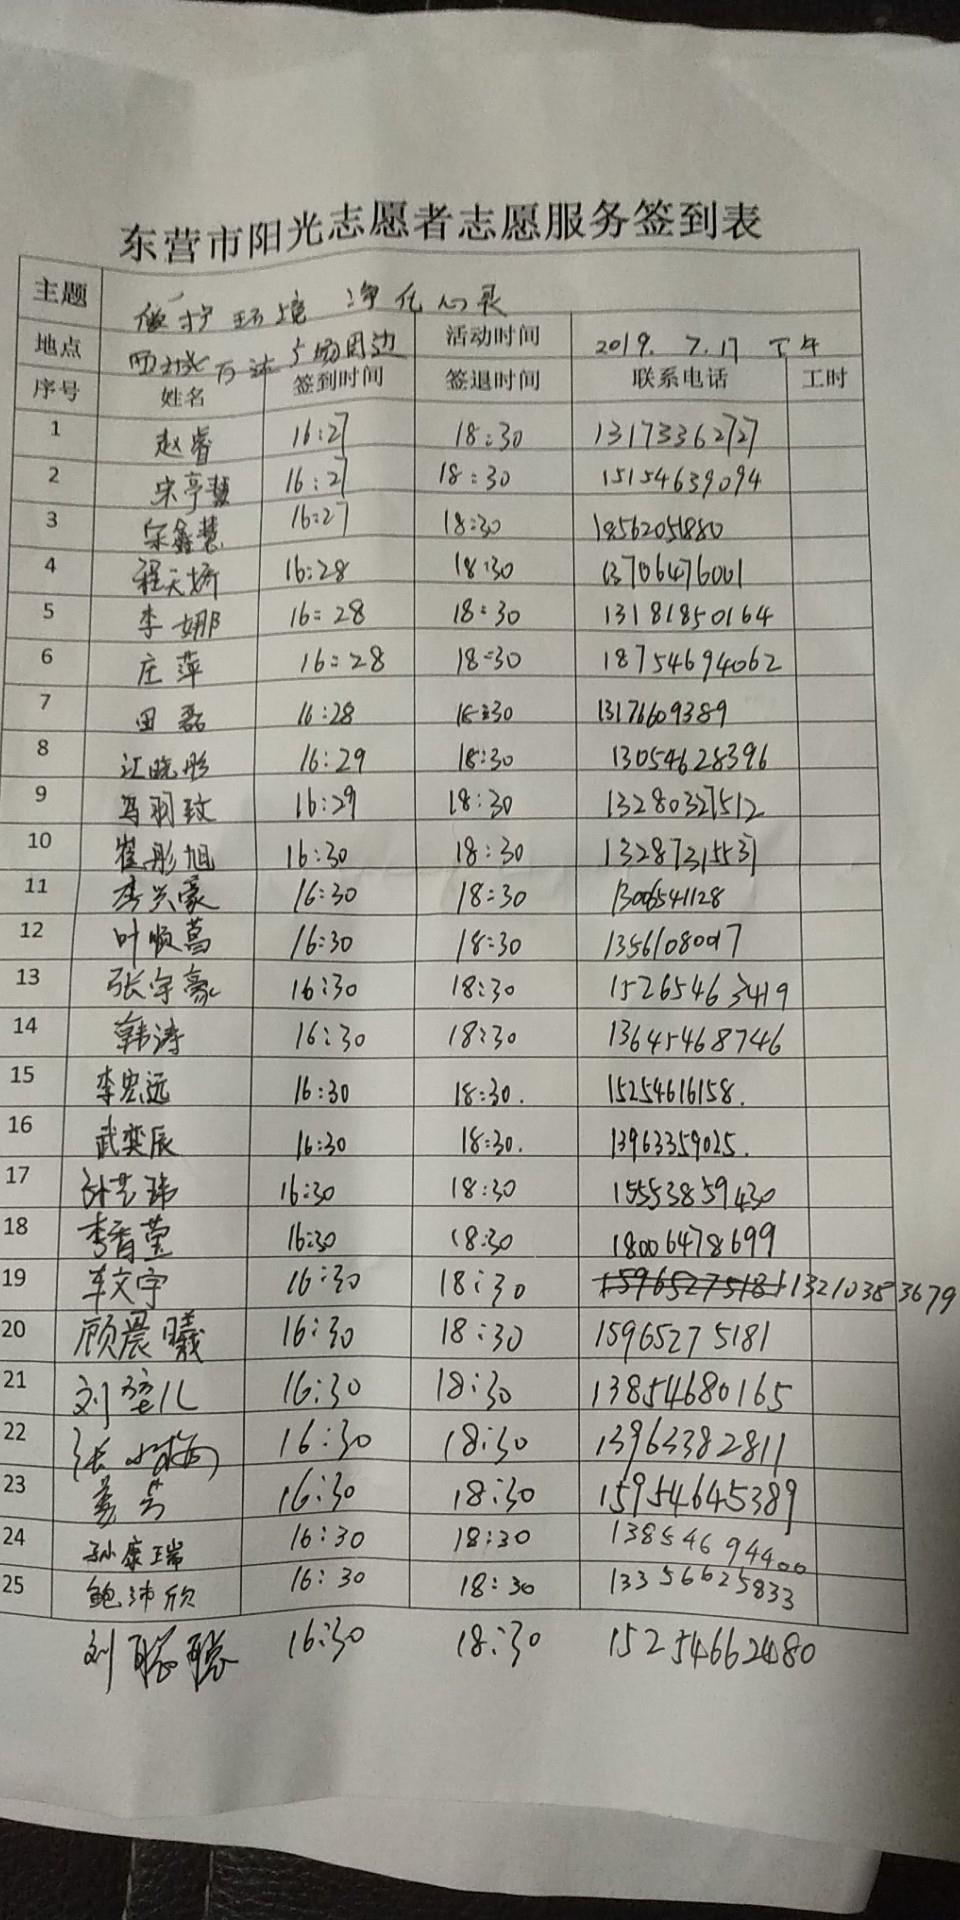 东营市阳光志愿者志愿服务签到表
主题 保护环境 净化心灵
地点 西城万达广场周边 活动时间 2019.7.17 下午
序号 姓名 签到时间 签退时间 联系电话 工时
1 赵睿 16:27 18:30 13173362727
2 宋亭慧 16:27 18:30 15154639094
3 宋鑫慧 16:27 18:30 18562051880
4 程天娇 16:28 18:30 13706476001
5 李娜 16:28 18:30 13181850164
6 庄萍 16:28 18:30 18754694062
7 田磊 16:28 18:30 13176609389
8 江晓彤 16:29 18:30 13054628396
9 冯羽玟 16:29 18:30 13280327512
10 崔彤旭 16:30 18:30 13287315531
11 李兴豪 16:30 18:30 13006541128
12 叶顺菖 16:30 18:30 13561080017
13 张宇豪 16:30 18:30 15265463419
14 韩涛 16:30 18:30 13645468746
15 李宏远 16:30 18:30. 15254616158.
16 武奕辰 16:30 18:30. 13963359025.
17 孙艺玮 16:30 18:30 15553859430
18 李香莹 16:30 18:30 18006478699
19 文宇 16:30 18:30 15965275181 13210383679
20 顾晨曦 16:30 18:30 15965275181
21 刘儿 16:30 18:30 13854680165
22 张小梅 16:30 18:30 13963382811
23 姜芳 16:30 18:30 15954645389
24 孙康瑞 16:30 18:30 13854694400
25 鲍沛欣 16:30 18:30 13356625833
刘聪聪 16:30 18:30 15254662480